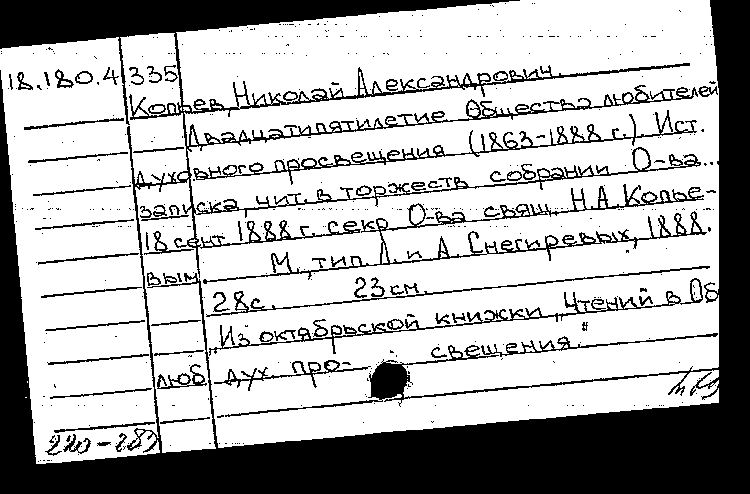 18.180.4 335
Копьев, Николай Александрович.
Двадцатипятилетие Общества любителей
духовного просвещения (1863-1888 г.) Ист.
записка, чит. в торжеств собрании О-ва...
18 сент 1888 г. секр О-ва свящ. Н.А. Копье-
вым. М., тип. Л. и А. Снегиревых, 1888.
28с. 23 см.
„Из октябрьской книжки „Чтений в Об
люб. дух. про- свещения."